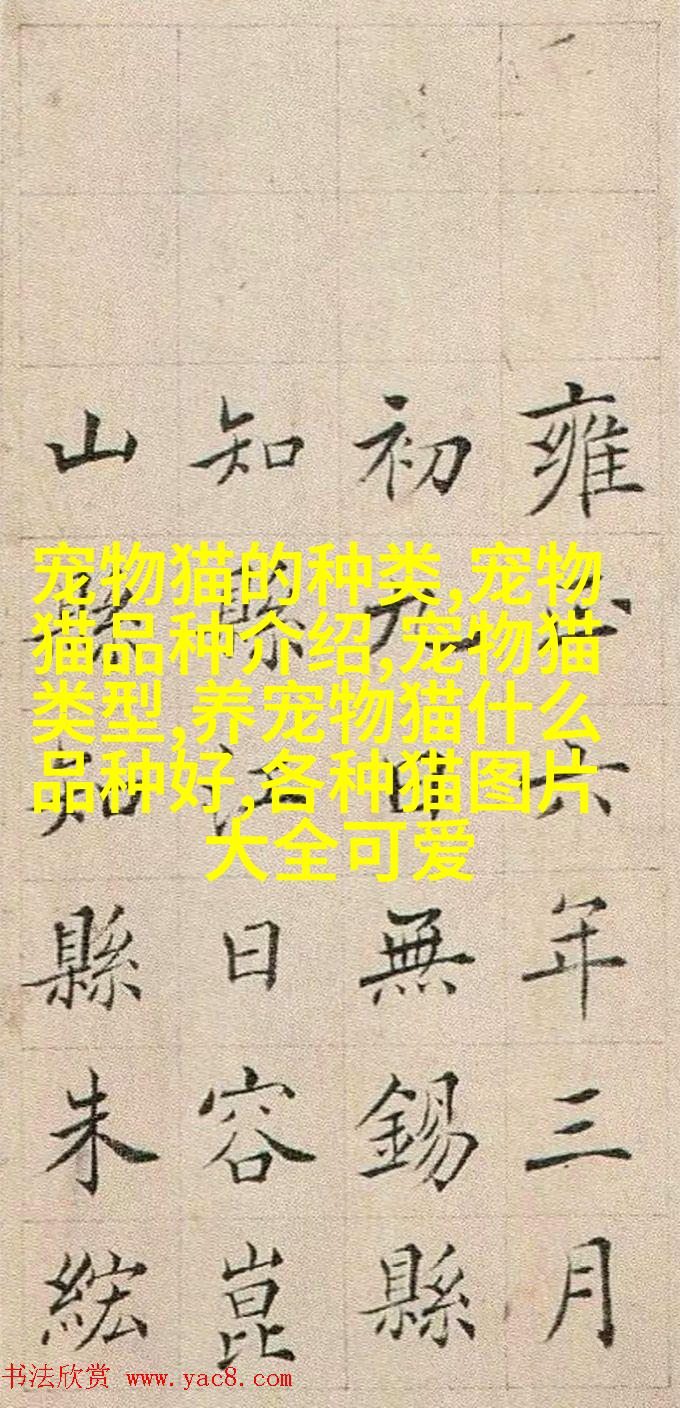 雍正六年三月
初九日無錫縣
知縣江日容崑
山縣知縣朱綋
宠物猫的种类,宠物
猫品种介绍,宠物猫
类型,养宠物猫什么
品种好,各种猫图片
大全可爱
书法欣赏 www.yac8.com